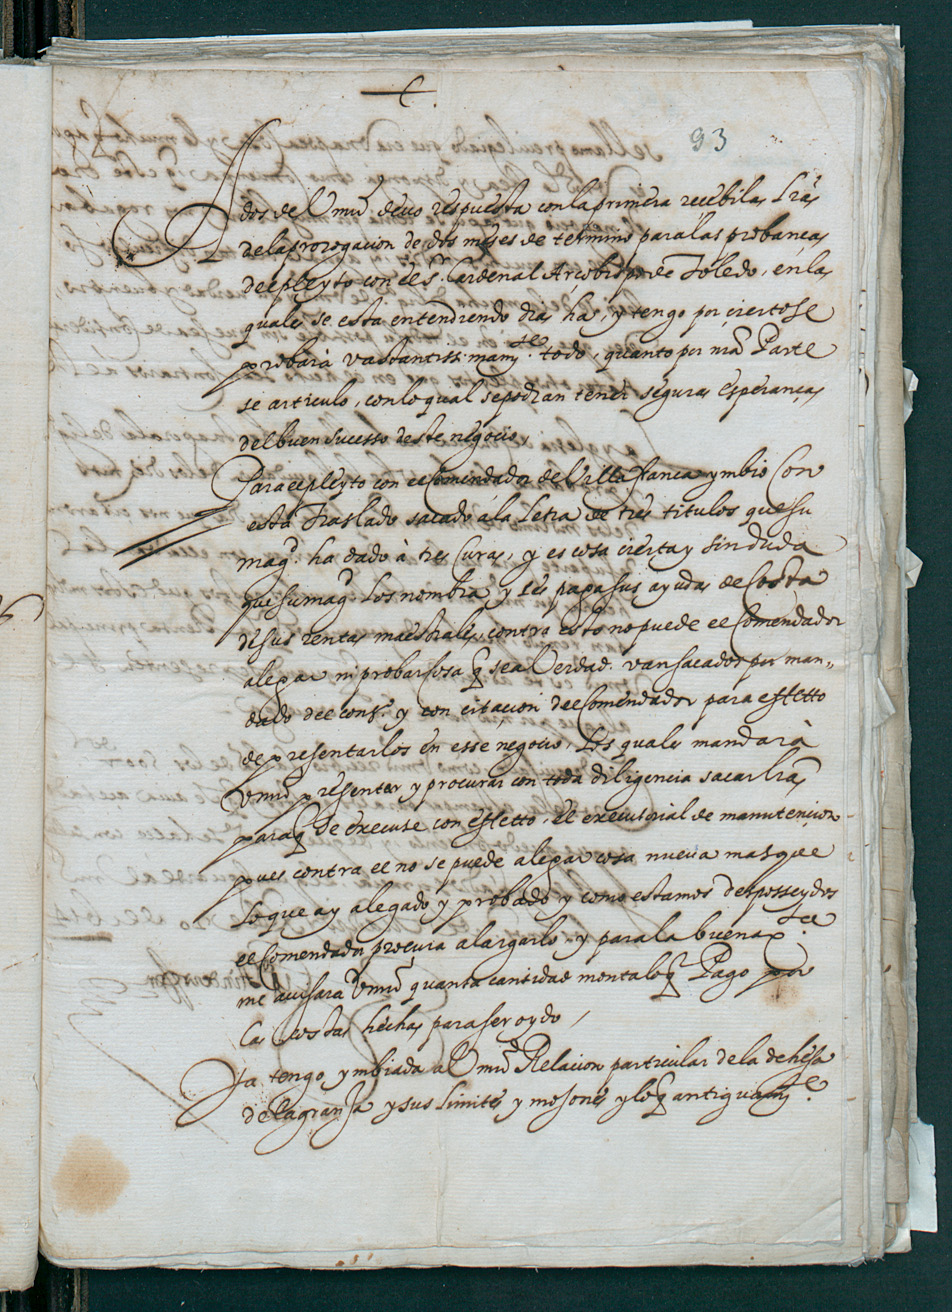 93
A dos de Vmrd. devo respuesta con la primera recebi las Lrās
de la prorogacion de dos meses de termino para las probanças
del pleyto con el S.r Cardenal Arçobispo de Toledo, en las
quales se esta entendiendo dias ha, y tengo por cierto se
probarà vastantissimam.te todo, quanto por nrā Parte
se articulo, con lo qual se podran tener seguras esperanças
del buen sucesso deste negocio,
Para el pleyto con el Comendador de Villafranca ymbio con
esta Traslado sacado á la Letra de tres titulos que su
mag.d ha dado à tres Curas, y es cosa cierta y sin duda
que su mag.d los nombra y les paga sus ayudas de Costa
de sus rentas maestrales, contra esto no puede el Comendador
alegar ni probar cosa q̄ sea Verdad. van sacados por man„
dado del cons.o y con citacion del Comendador para effetto
de presentarlos en esse negocio, Los quales mandarà
Vmrd. presentar y procurar con toda diligencia sacar Lrās
paraq̄ se execute con effetto, el executorial de manutencion
pues contra el no se puede alegar cosa nueva mas que
lo que ay alegado y probado y como estamos desposseydos
el Comendador procura alargarlo, y para la buena x.ta
me avisara Vmrd. quanta cantidad monta loq̄ Pago por
las Costas hechas para ser oydo,
Ya tengo ymbiada a Vmrd. Relacion particular de la dehesa
de la granja y sus limites y mojones y loq̄ antiguam.te